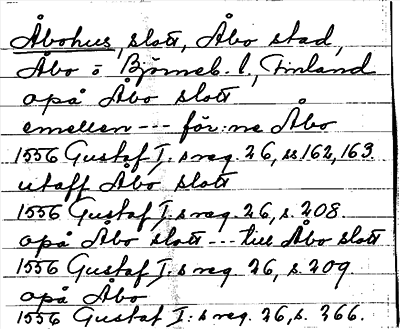 Åbohus, slott, Åbo stad,
Åbo o Björneb. l., Finland
opå Åbo slott
emellen --- för:ne Åbo
1556 Gustaf I:s reg. 26, ss 162, 163.
utaff Åbo slott
1556 Gustaf I:s reg. 26, s. 208.
opå Åbo slott --- till Åbo slott
1556 Gustaf I:s reg. 26, s. 209.
opå Åbo
1556 Gustaf I:s reg. 26, s. 266.